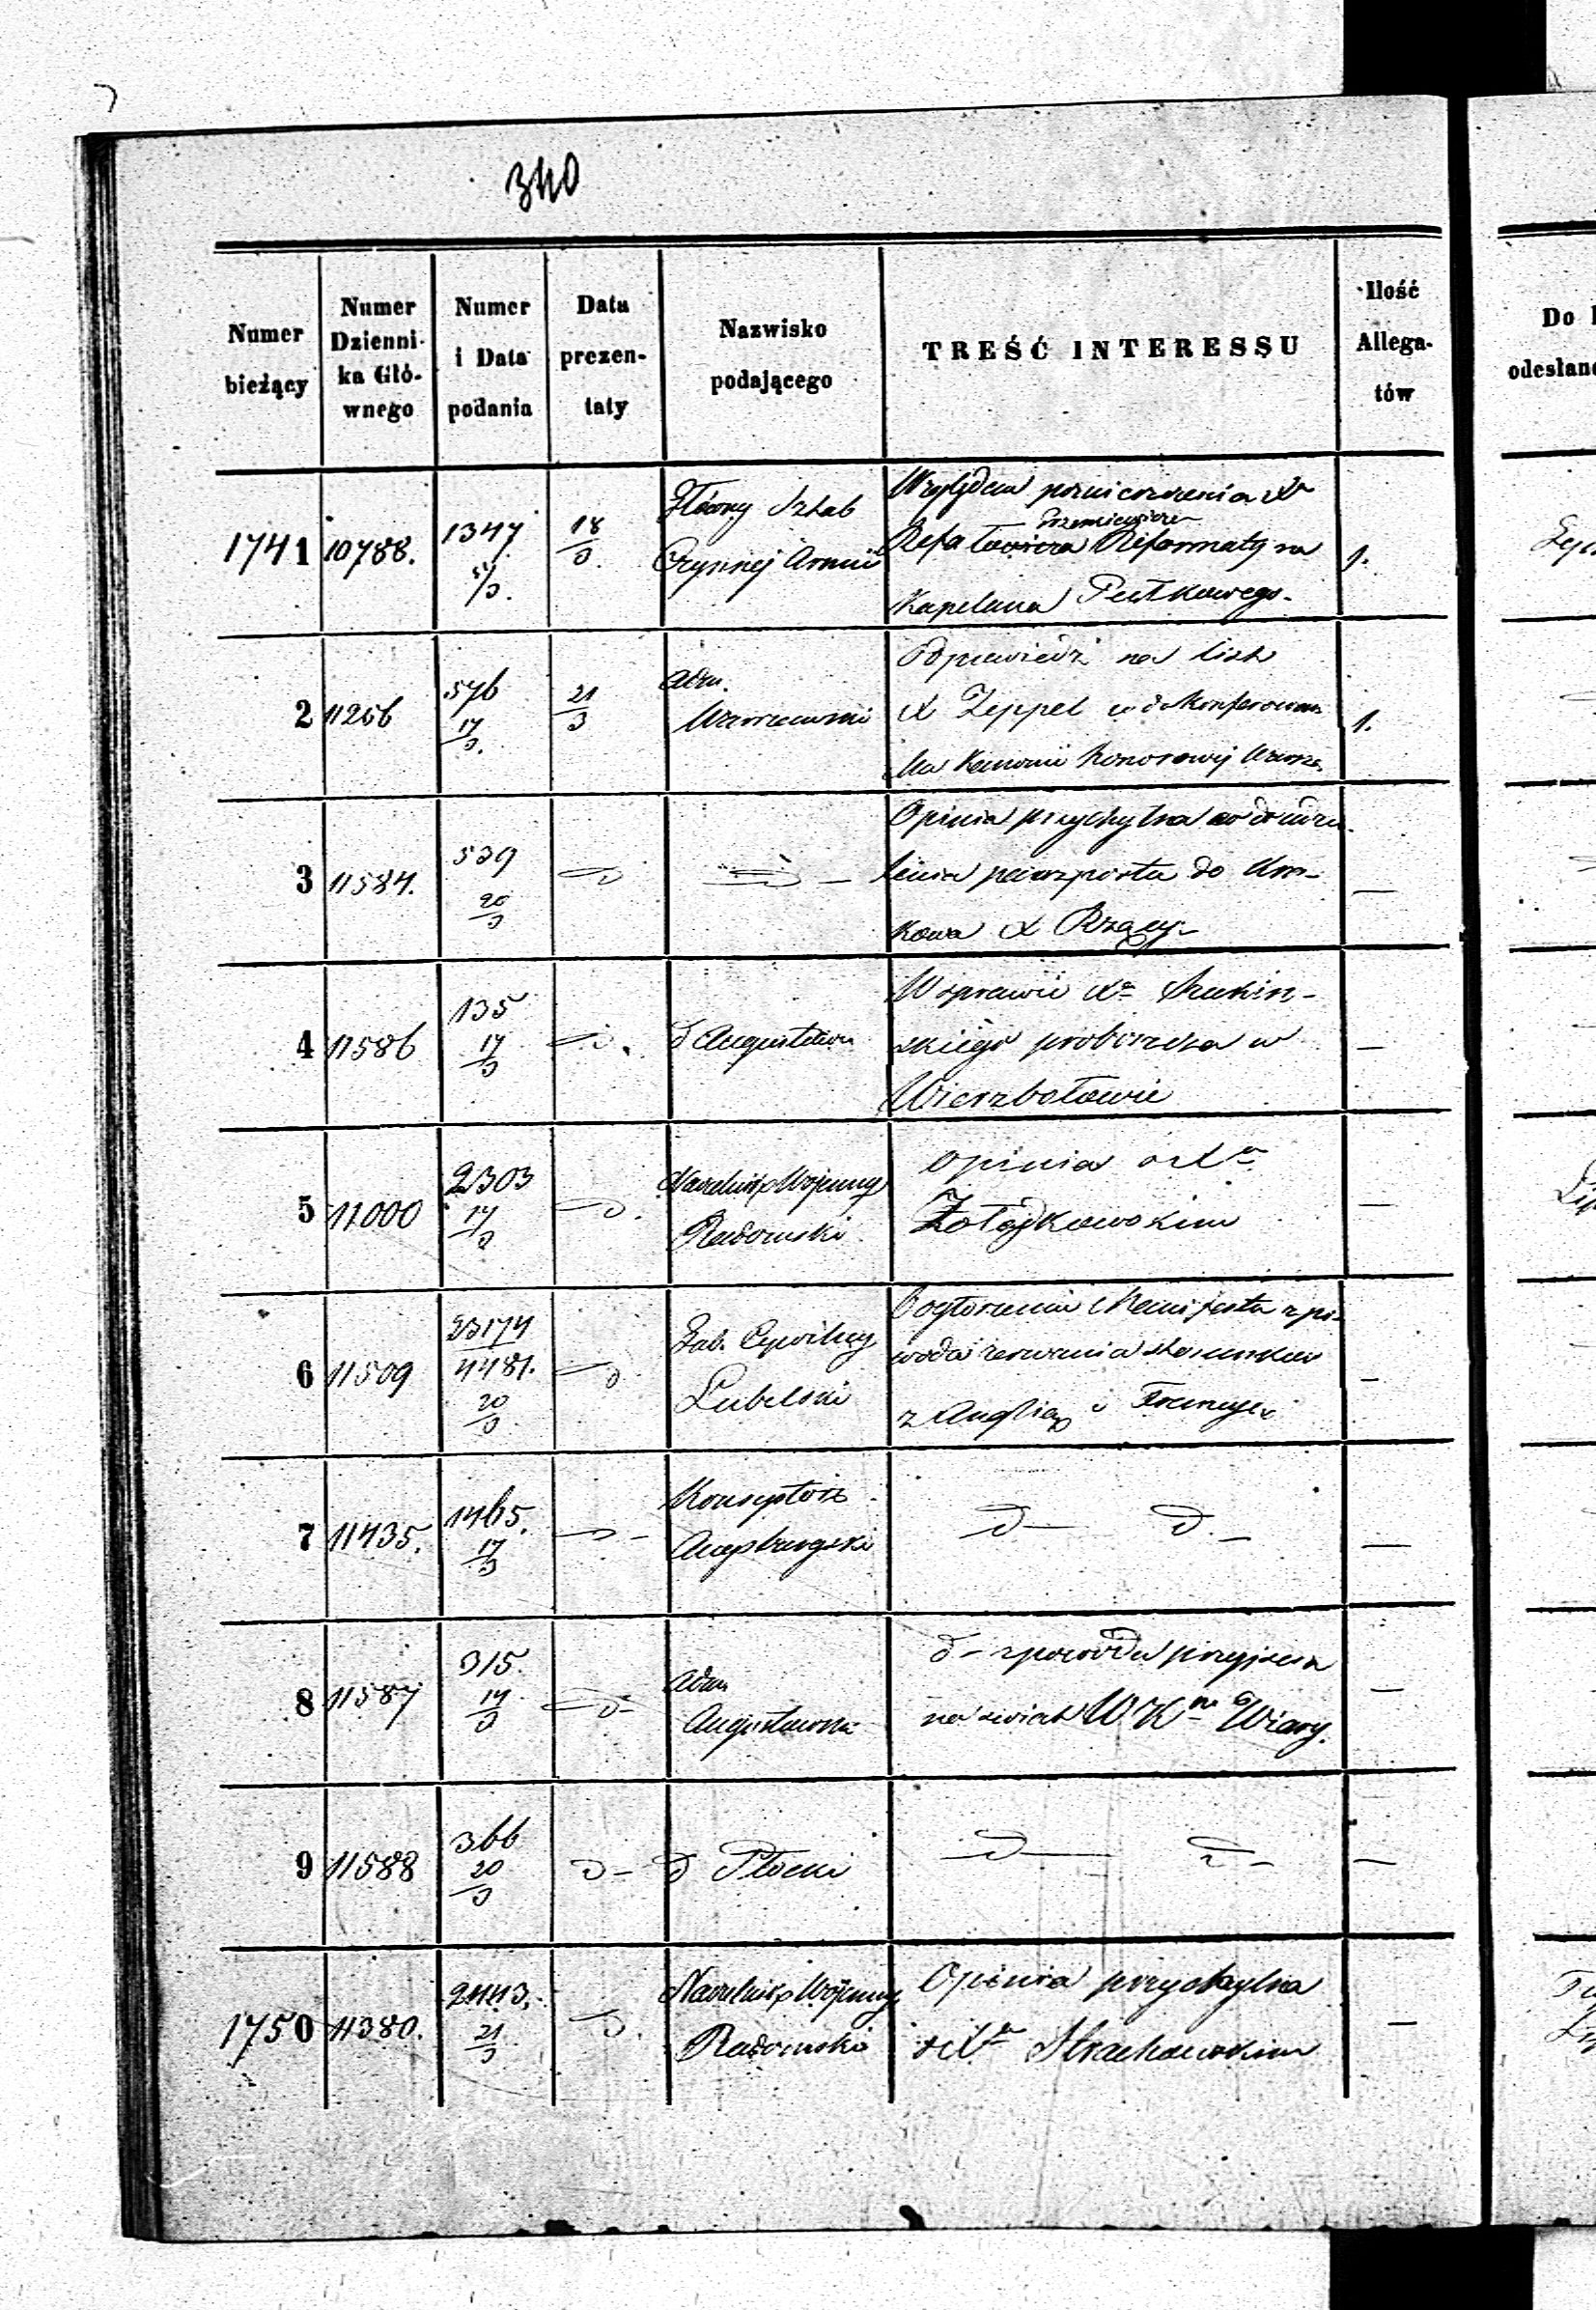 340
Numer bieżący
Numer Dzienni- ka Głó- wnego
Numer i Data podania
Data prezen- taty
Nazwisko podającego
TREŚĆ INTERESSU
Ilość Allega- tów
Do
odesłane
1741 10788. 1347 18/3 Główny Sztab
Czynnej Armii
Względem
Reformaty na
Kapelana Pułkowego.
1.
2 11266 576 17/3. 21/3 Adm.
Warszawski
Odpowiedź na list
X Zeppel
Kanonii honorowej Warsz.
1.
3 11584. 539 20/3 — d —
Opinia przychylna co do udzie
lenia paszportu do Kra-
kowa X Rzący
—
4 11586 135 17/3 — d. d Augustow
W sprawie Xa
skiego proboszcza w
Wierzbołowie
—
5 11000 2303 17/3 — d. Naczelnik Wojenny
Radomski
Opinia o Xu
Żołądkowskim
—
6 11509 23174/4481. 20/3 — d Gub. Cywilny
Lubelski
Ogłoszenie Manifestu z po-
wodu zerwania stosunków
z Anglią i Francyą
—
7 11435. 1465. 17/3 — d —
Konsystorz
Augsburgski
— d — d. —
—
8 11587 315. 17/3 — d — Adm
Augustowski
d – z powodu przyjścia
na świat W. Kny Wiary.
—
9 11588 366 20/3 d – d Płocki
— d — d —
—
1750 11380. 2443. 21/3 — d. Naczelnik Wojenny
Radomski
Opinia przychylna
o Xu Strachowskim
—